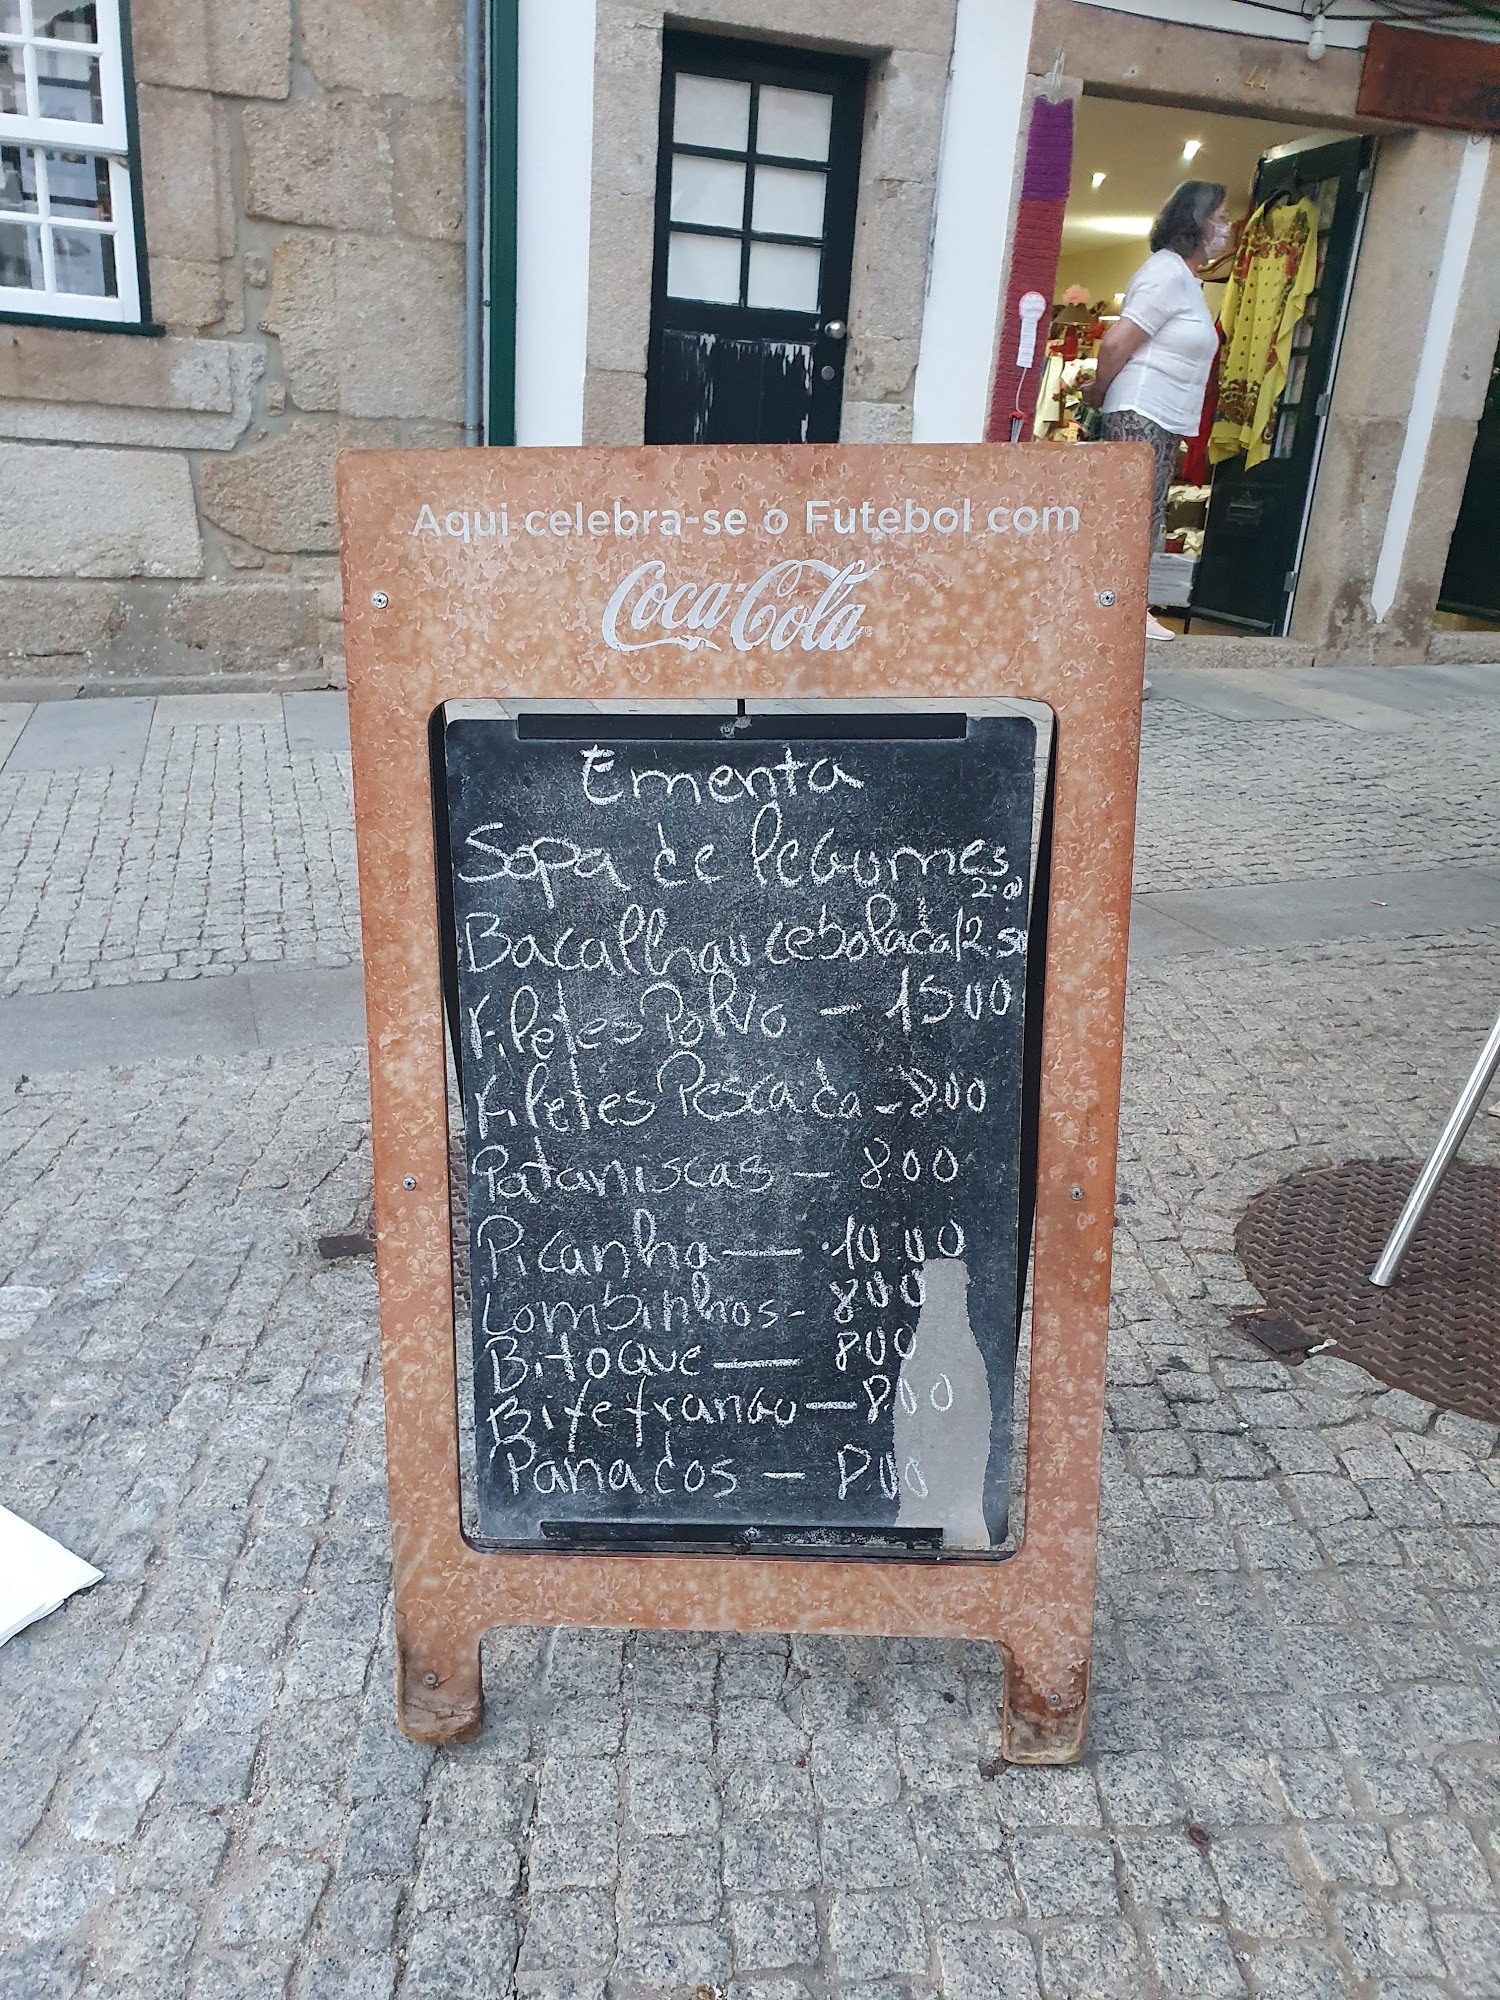 Aqui celebra-se o Futebol com
Coca-Cola
Ementa
Sopa de legumes
2.00
Bacalhau cebolada 12.50
Filetes Polvo - 1500
Filetes Pescada - 8.00
Pataniscas - 8.00
Picanha - 10.00
Lombinhos - 800
Bitoque - 800
Bife frango - 8.00
Panados - 8.00
44